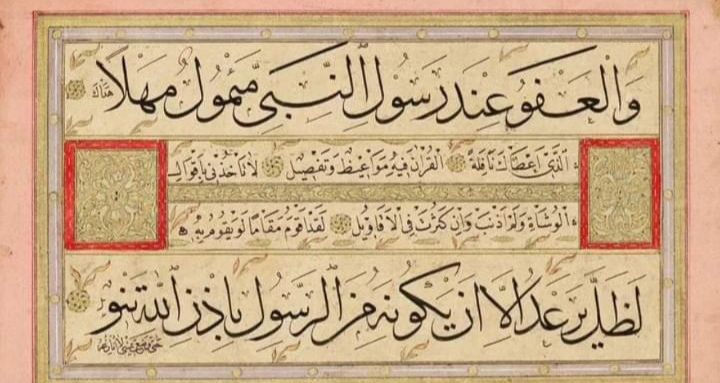 وَالْعَفْوُ عِنْدَ رَسُولِ النَّبِىِّ مَئْمُولُ مَهْلًا هَدَاكَ
الَّذِى اَعْطَاكَ نَافِلَةَ الْقُرْآنِ فِيهِ مَوَاعِيظُ وَتَفْصِيلُ لَا تَأْخُذَنِّى بِاَقْوَالِ
الْوُشَاةِ وَلَمْ اُذْنِبْ وَاِنْ كَثُرَتْ فِىَّ الْاَقَاوِيلُ لَقَدْ اَقُومُ مَقَامًا لَوْ يَقُومُ بِهِ
لَظَلَّ يَرْعَدُ اِلَّا اَنْ يَكُونَهُ مِنَ الرَّسُولِ بِاِذْنِ اللّٰهِ تَنْو